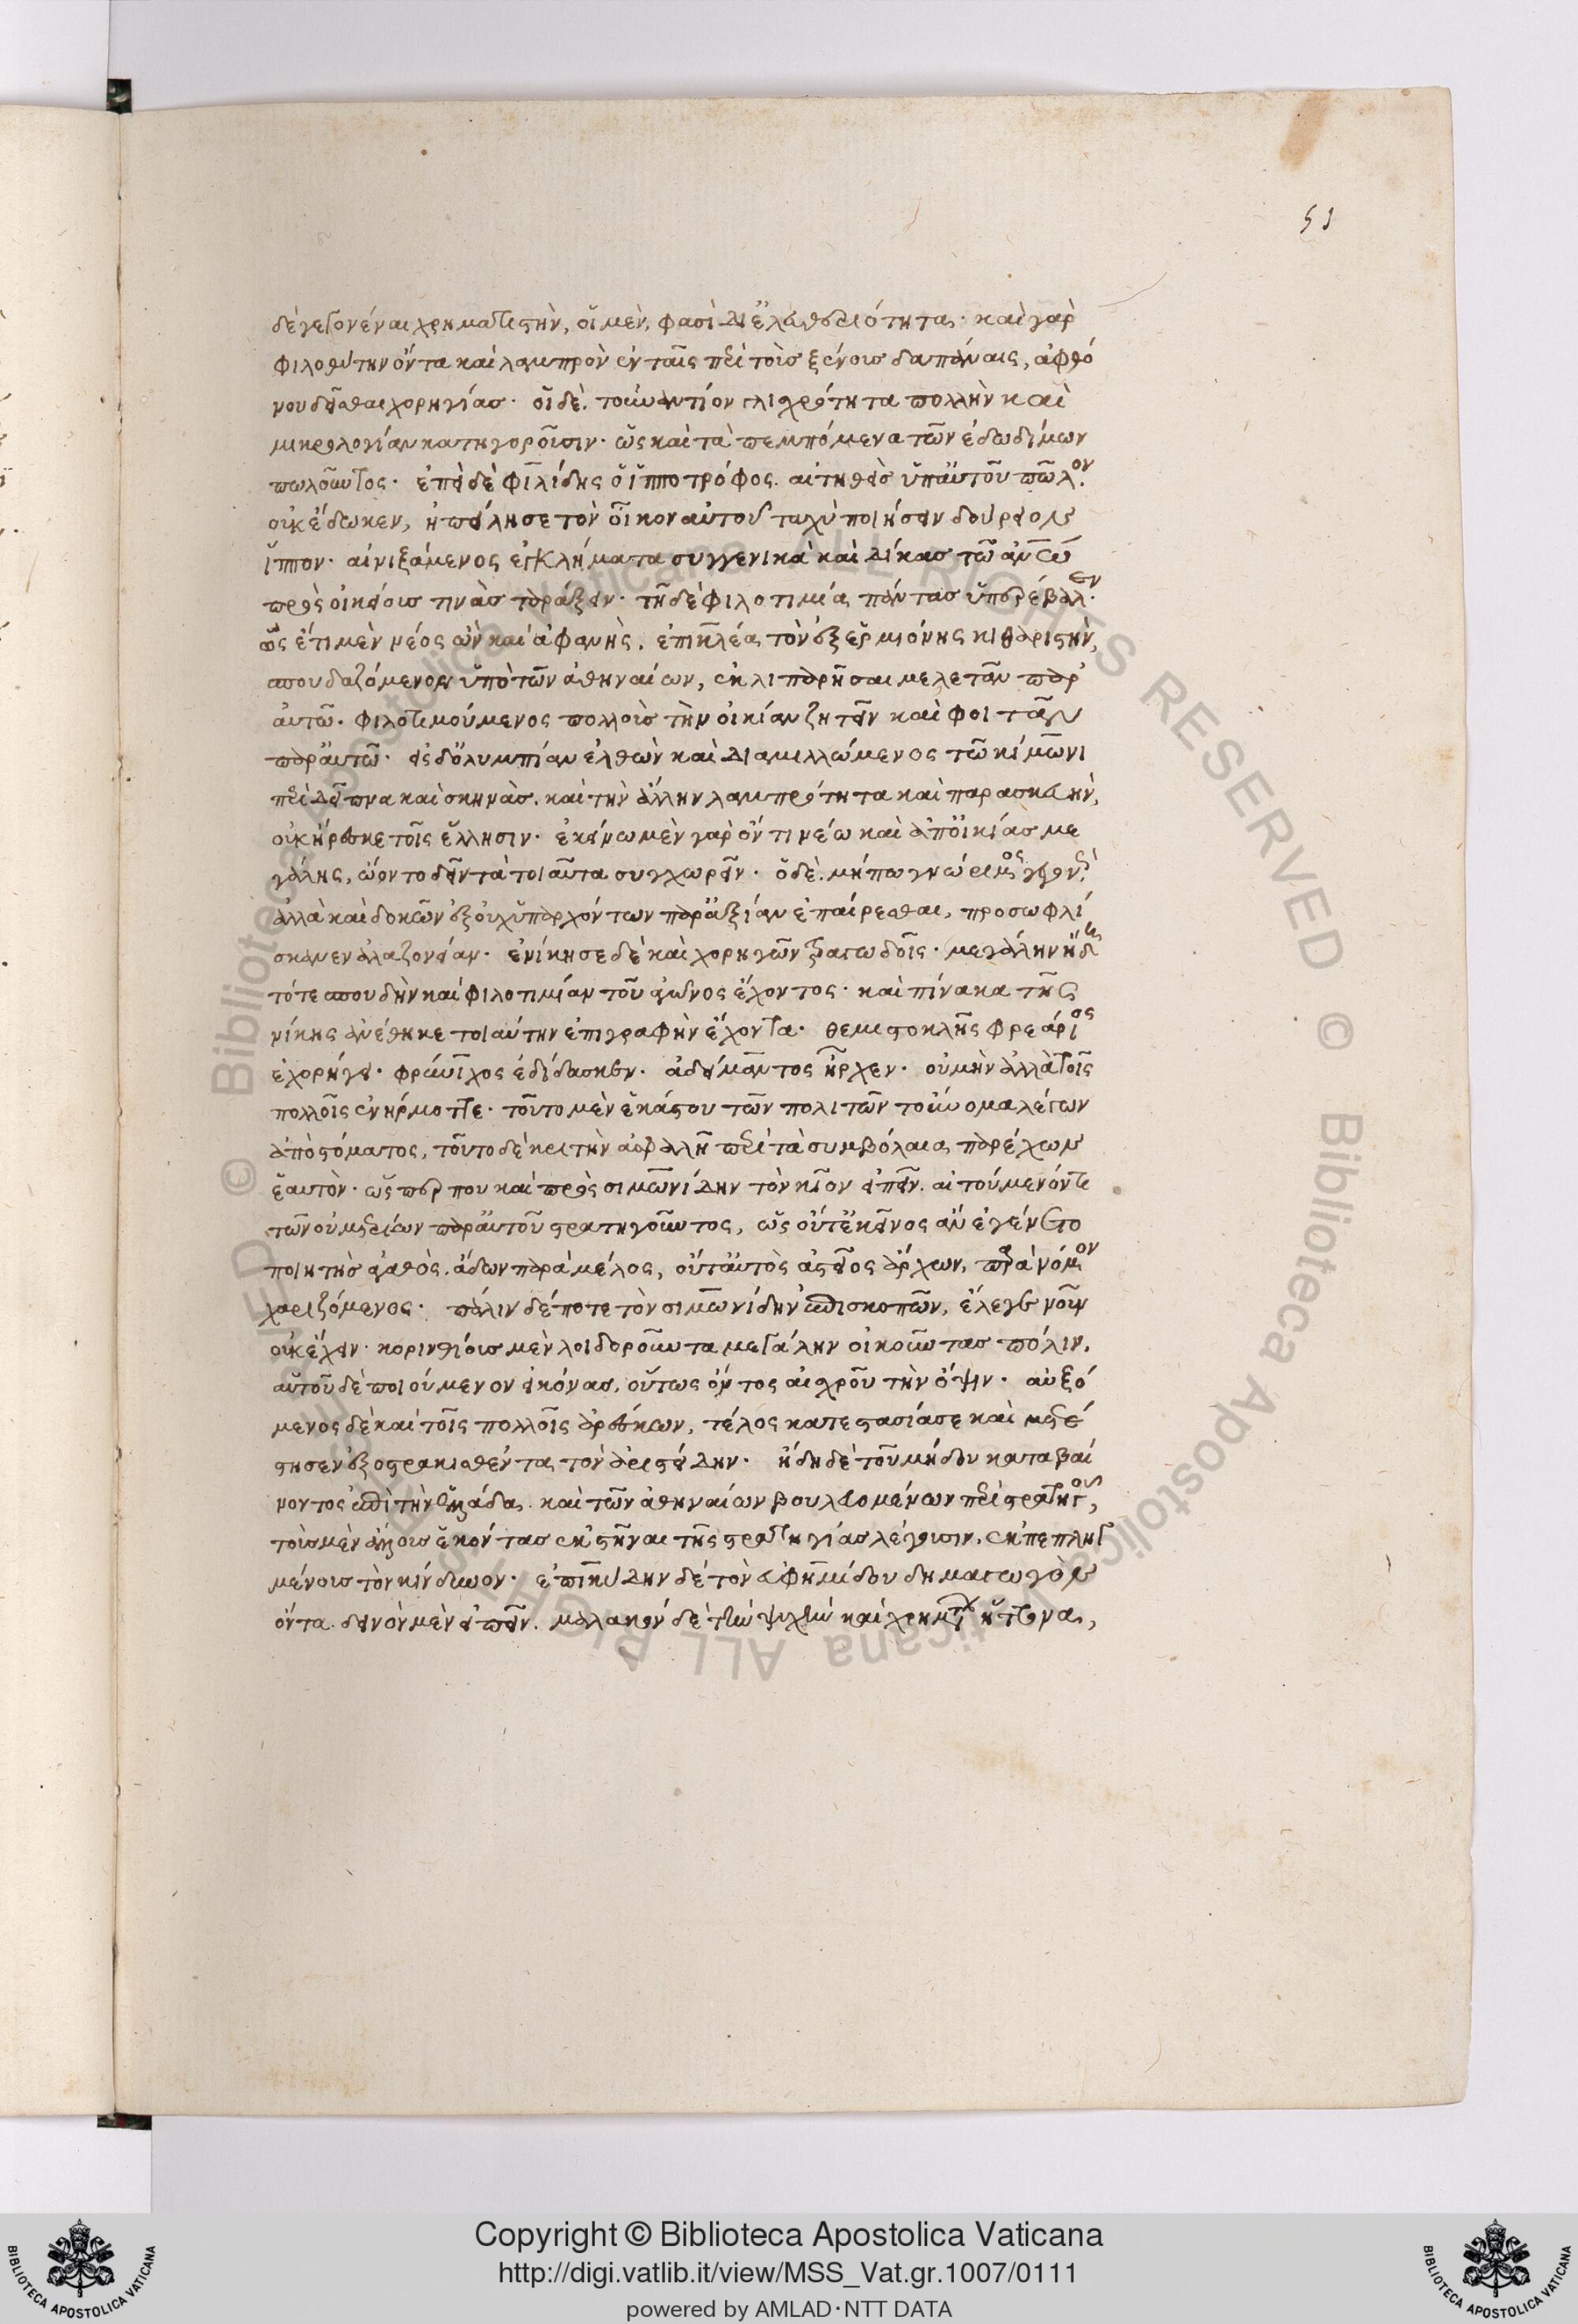 51
δὲ γεγονέναι χρηματιστὴν, οἱ μὲν, φασὶ δι' ἐλευθεριότητα· καὶ γὰρ
φιλοθύτην ὄντα καὶ λαμπρὸν ἐν ταῖς περὶ τοὺς ξένους δαπάναις, ἀφθό
νου δεῖσθαι χορηγίας· οἱ δὲ. τοὐναντίον γλισχρότητα πολλὴν καὶ
μικρολογίαν κατηγοροῦσιν· ὡς καὶ τὰ πεμπόμενα τῶν ἐδωδίμων
πωλοῦντος· ἐπεὶ δὲ φιλίδης ὁ ἱπποτρόφος. αἰτηθεὶς ὑπ' αὐτοῦ πῶλον.
οὐκ ἔδωκεν, ἠπείλησε τὸν οἶκον αὐτοῦ ταχὺ ποιήσειν δούρειον
ἵππον· αἰνιξάμενος ἐγκλήματα συγγενικὰ καὶ δίκας τῶ ἀνῶ
πρὸς οἰκείους τινὰς ταράξειν· τῆ δὲ φιλοτιμία πάντας ὑπερέβαλεν.
ὡς ἔτι μὲν νέος ὢν καὶ ἀφανὴς. ἐπικλέα τὸν ἐξ ἑρμιόνης κιθαριστὴν,
σπουδαζόμενον ὑπὸ τῶν ἀθηναίων, ἐκλιπαρῆσαι μελετᾶν παρ'
αὐτῶ. φιλοτιμούμενος πολλοὺς τὴν οἰκίαν ζητεῖν καὶ φοιτᾶν
παρ' αὐτῶ· εἰς δ' ὀλυμπίαν ἐλθὼν καὶ διαμιλλώμενος τῶ κίμωνι
περὶ δεῖπνα καὶ σκηνὰς. καὶ τὴν ἄλλην λαμπρότητα καὶ παρασκευὴν,
οὐκ ἤρεσκε τοῖς ἕλλησιν· ἐκείνω μὲν γὰρ ὄντι νέω καὶ ἀπ' οἰκίας με
γάλης, ᾤοντο δεῖν τὰ τοιαῦτα συγχωρεῖν· ὁ δὲ. μήπω γνώριμος γεγονὼς
ἀλλὰ καὶ δοκῶν ἐξ οὐχ ὑπαρχόντων παρ' ἀξίαν ἐπαίρεσθαι, προσωφλί
σκανεν ἀλαζονείαν· ἐνίκησε δὲ καὶ χορηγῶν τραγωδοῖς· μεγάλην ἤδη
τότε σπουδὴν καὶ φιλοτιμίαν τοῦ ἀγῶνος ἔχοντος· καὶ πίνακα τῆς
νίκης ἀνέθηκε τοιαύτην ἐπιγραφὴν ἔχοντα· θεμιστοκλῆς φρεάριος
ἐχορήγει· φρύνιχος ἐδίδασκεν· ἀδείμαντος ἦρχεν· οὐ μὴν ἀλλὰ τοῖς
πολλοῖς ἐνήρμοττε· τοῦτο μὲν ἑκάστου τῶν πολιτῶν τοὔνομα λέγων
ἀπὸ στόματος, τοῦτο δὲ κριτὴν ἀσφαλῆ περὶ τὰ συμβόλαια παρέχων
ἑαυτὸν· ὥς περ που καὶ πρὸς σιμωνίδην τὸν κῖον εἰπεῖν. αἰτούμενόν τι
τῶν οὐ μετρίων παρ' αὐτοῦ στρατηγοῦντος, ὡς οὔτ' ἐκεῖνος ἂν ἐγένετο
ποιητὴς ἀγαθὸς. ἄδων παρὰ μέλος, οὔτ' αὐτὸς ἀστεῖος ἄρχων, παρὰ νόμον
χαριζόμενος· πάλιν δέ ποτε τὸν σιμωνίδην ἐπισκοπῶν, ἔλεγε νοῦν
οὐκ ἔχειν· κορινθίους μὲν λοιδοροῦντα μεγάλην οἰκοῦντας πόλιν.
αὐτοῦ δὲ ποιούμενον εἰκόνας. οὕτως ὄντος αἰσχροῦ τὴν ὄψιν· αὐξό
μενος δὲ καὶ τοῖς πολλοῖς ἀρέσκων, τέλος κατεστασίασε καὶ μετέ
στησεν ἐξοστρακισθέντα τὸν ἀριστείδην· ἤδη δὲ τοῦ μήδου καταβαί
νοντος ἐπὶ τὴν ἑλλάδα. καὶ τῶν ἀθηναίων βουλευομένων περὶ στρατηγοῦ,
τοὺς μὲν ἄλλους ἑκόντας ἐκστῆναι τῆς στρατηγίας λέγουσιν. ἐκπεπληγ
μένους τὸν κίνδυνον· ἐπικύδην δὲ τὸν εὐφημίδου δημαγωγὸν
ὄντα. δεινὸν μὲν εἰπεῖν. μαλακὸν δὲ τὴν ψυχὴν καὶ χρημάτων ἥττονα,
© Biblioteca Apostolica Vaticana ALL RIGHTS RESERVED
© Biblioteca Apostolica Vaticana ALL RIGHTS RESERVED
Copyright © Biblioteca Apostolica Vaticana
http://digi.vatlib.it/view/MSS_Vat.gr.1007/0111
powered by AMLAD·NTT DATA
BIBLIOTECA APOSTOLICA VATICANA
BIBLIOTECA APOSTOLICA VATICANA